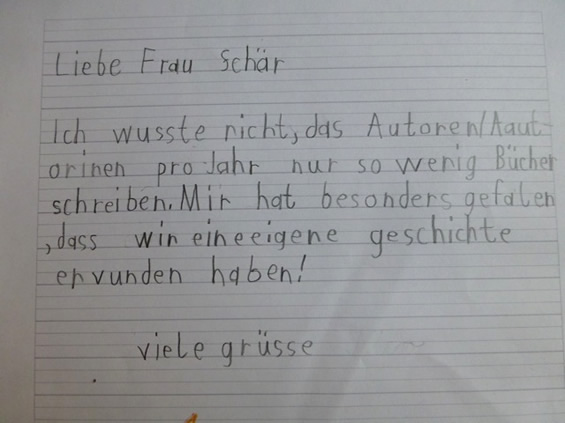 Liebe Frau Schär
Ich wusste nicht, das Autoren/Aaut-
orinen pro Jahr nur so wenig Bücher
schreiben. Mir hat besonders gefalen
, dass wir eine eigene geschichte
ervunden haben!
viele grüsse